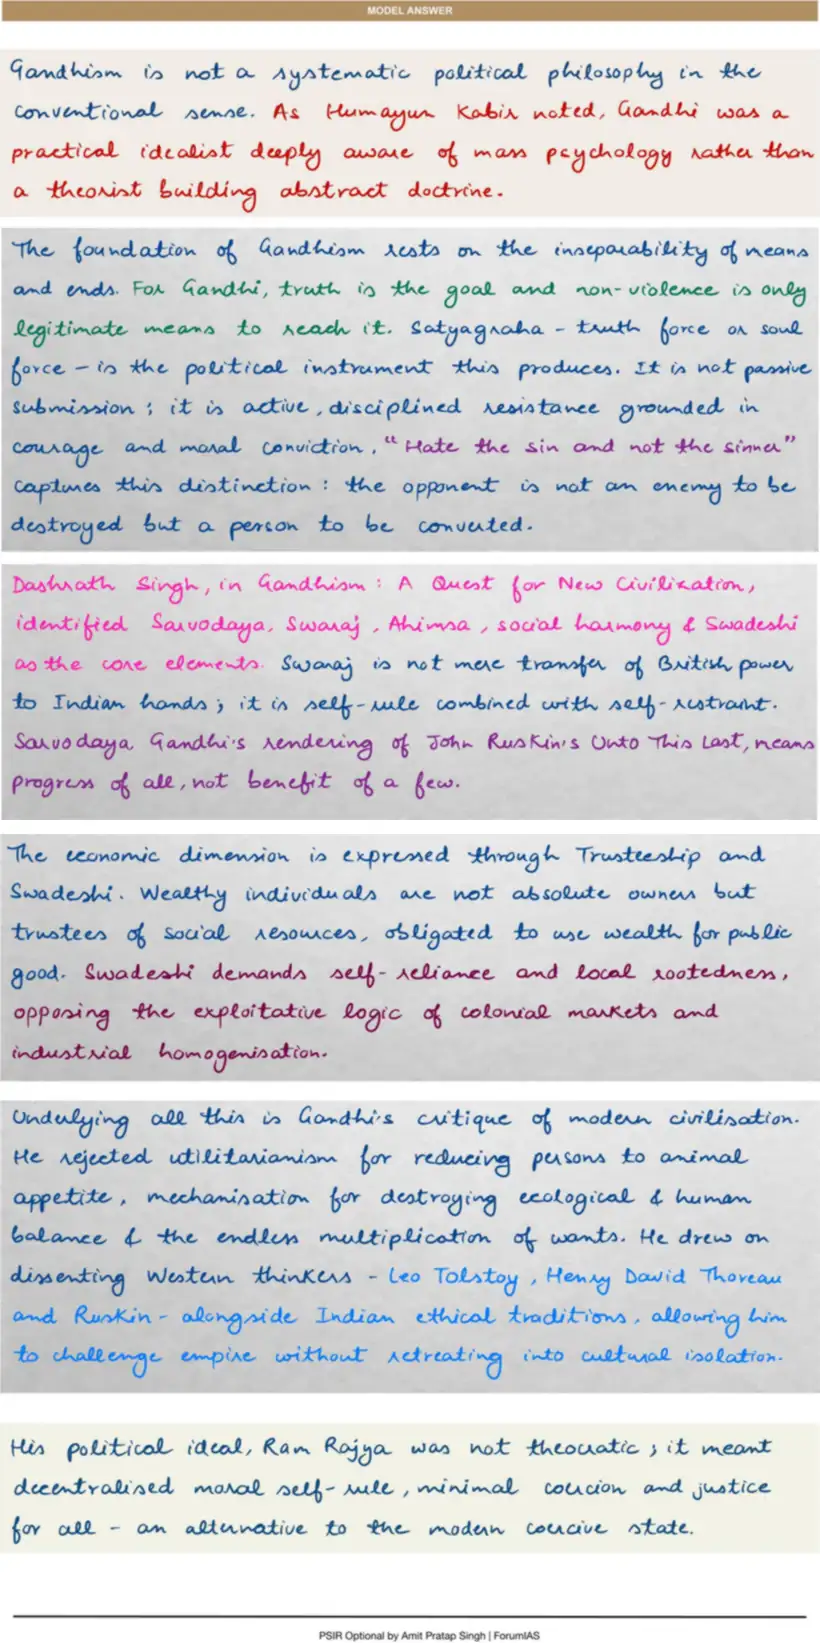 MODEL ANSWER
Gandhism is not a systematic political philosophy in the
conventional sense. As Humayun Kabir noted, Gandhi was a
practical idealist deeply aware of mass psychology rather than
a theorist building abstract doctrine.
The foundation of Gandhism rests on the inseparability of means
and ends. For Gandhi, truth is the goal and non-violence is only
legitimate means to reach it. Satyagraha - truth force or soul
force - is the political instrument this produces. It is not passive
submission; it is active, disciplined resistance grounded in
courage and moral conviction. "Hate the sin and not the sinner"
captures this distinction: the opponent is not an enemy to be
destroyed but a person to be converted.
Dashrath Singh, in Gandhism: A Quest for New Civilization,
identified Sarvodaya, Swaraj, Ahimsa, social harmony & Swadeshi
as the core elements. Swaraj is not mere transfer of British power
to Indian hands; it is self-rule combined with self-restraint.
Sarvodaya Gandhi's rendering of John Ruskin's Unto This Last, means
progress of all, not benefit of a few.
The economic dimension is expressed through Trusteeship and
Swadeshi. Wealthy individuals are not absolute owners but
trustees of social resources, obligated to use wealth for public
good. Swadeshi demands self-reliance and local rootedness,
opposing the exploitative logic of colonial markets and
industrial homogenisation.
Underlying all this is Gandhi's critique of modern civilisation.
He rejected utilitarianism for reducing persons to animal
appetite, mechanisation for destroying ecological & human
balance & the endless multiplication of wants. He drew on
dissenting Western thinkers - Leo Tolstoy, Henry David Thoreau
and Ruskin - alongside Indian ethical traditions, allowing him
to challenge empire without retreating into cultural isolation.
His political ideal, Ram Rajya was not theocratic; it meant
decentralised moral self-rule, minimal coercion and justice
for all - an alternative to the modern coercive state.
PSIR Optional by Amit Pratap Singh | ForumIAS